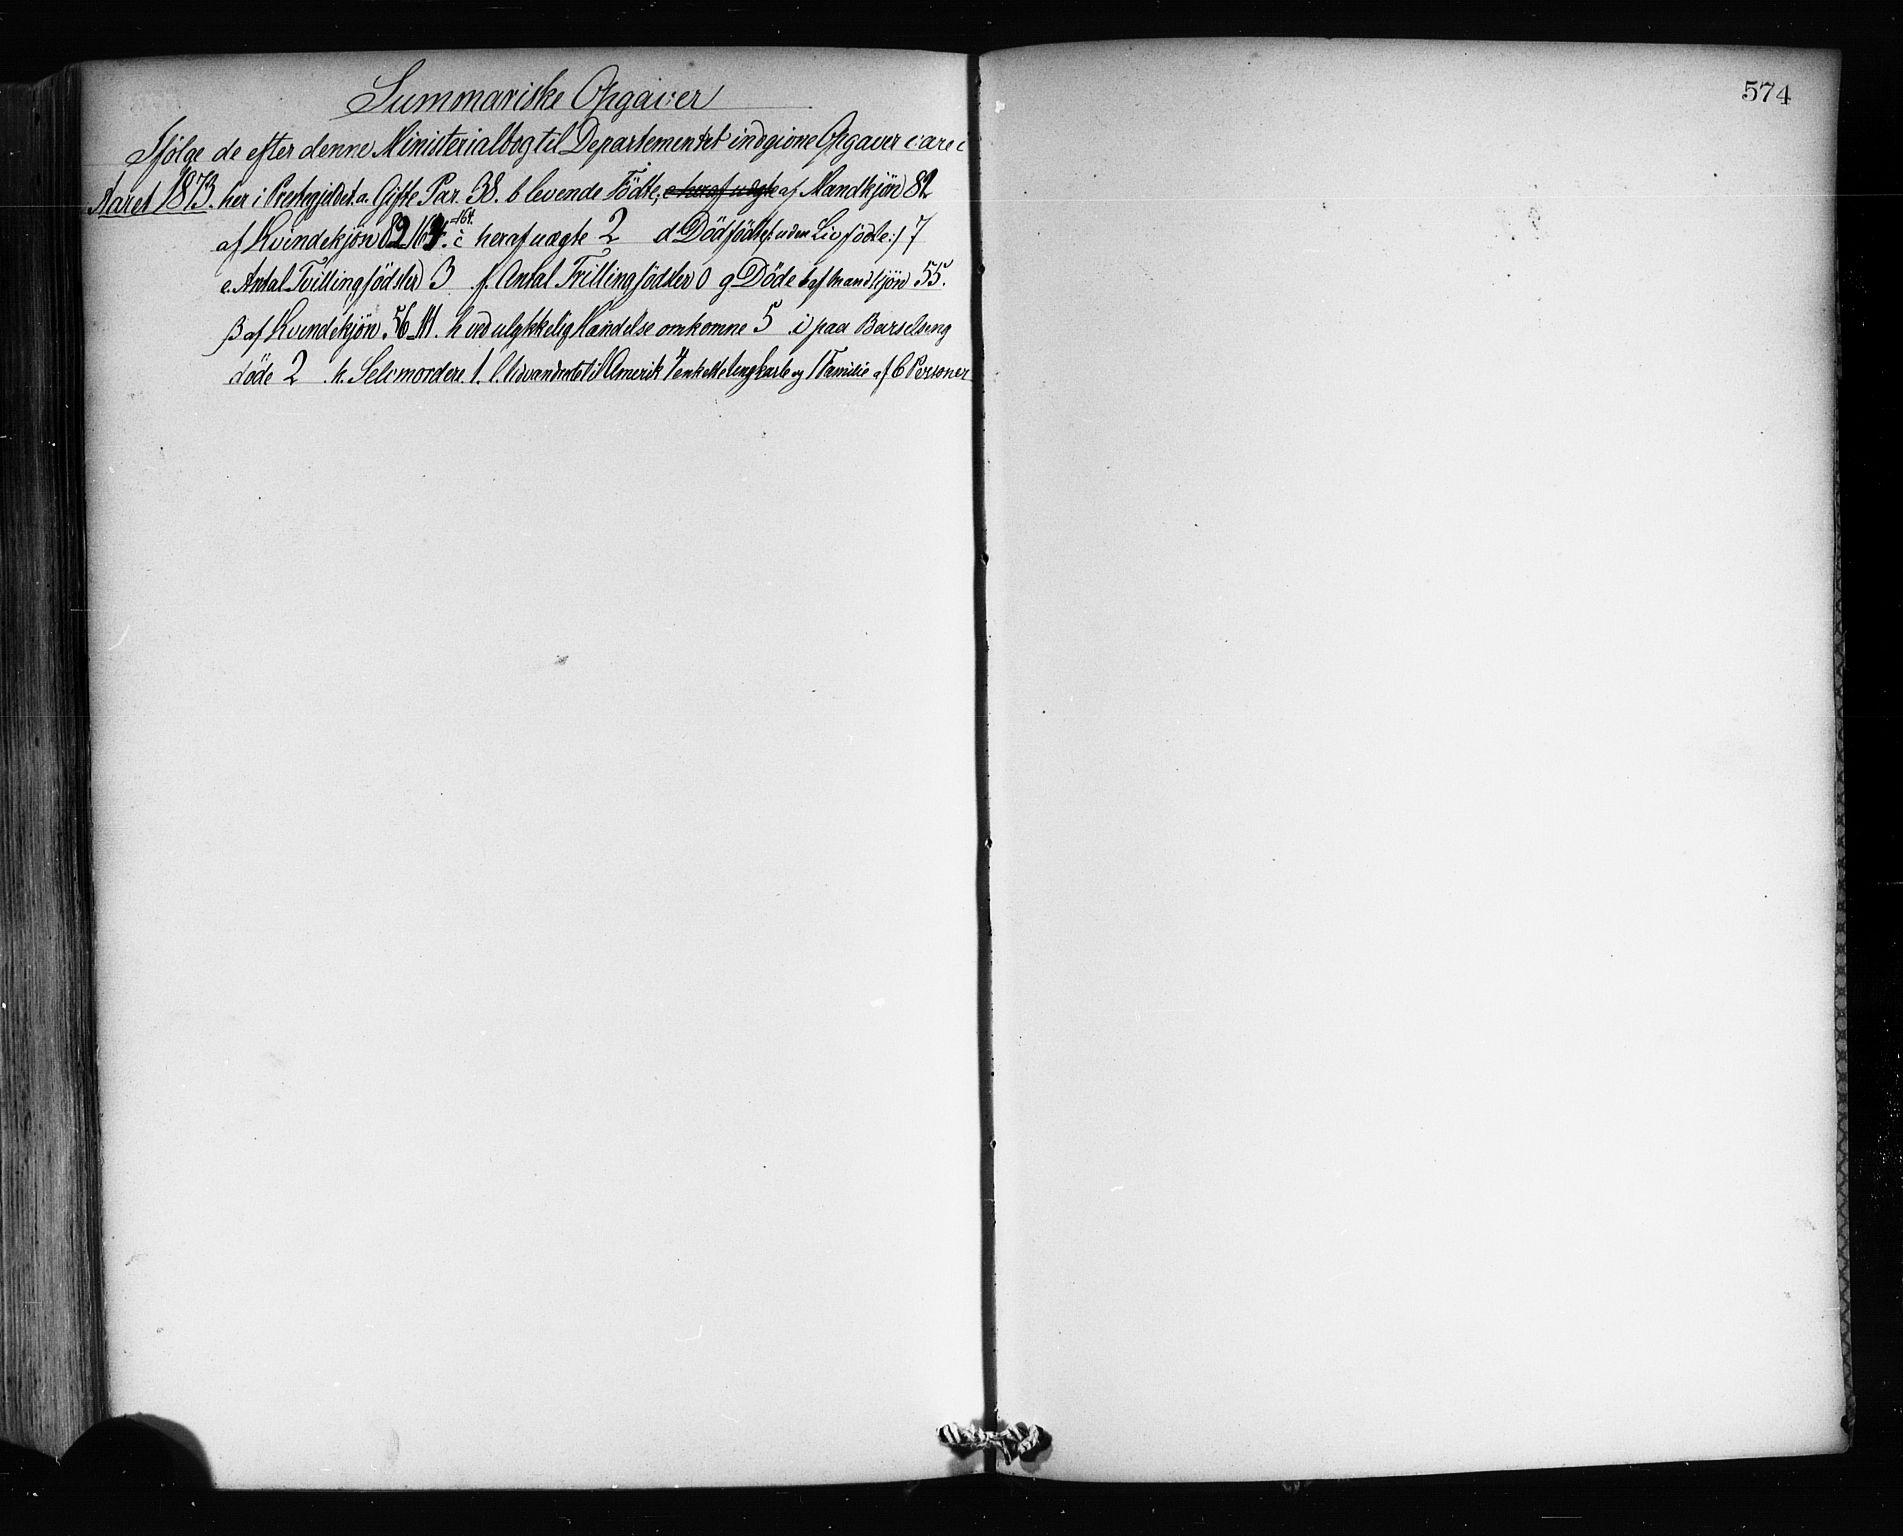 Summariske Opgaver
Ifølge de efter denne Ministerialbog til Departementet indgivne Opgaver vare i
Aaret 1873. her i Præstegjeldet. a. Gifte Par. 38. b levende Födte, c heraf uægte af Mandkjøn 82
af Kvindekjøn 82 164. =164. c heraf uægte 2 d Dödfödte /: uden Liv fødte:/ 7
e. Antal Tvillingfödsler 3 f. Antal Trillingfödsler 0 g Döde α af Mandkjøn 55.
β af Kvindekjøn. 56. 111. h ved ulykkelig Hændelse omkomne 5 i paa Barselseng
døde 2 k. Selvmordere. 1. l. Udvandrede til Amerik 4 enkelte Ungkarle og 1 Familie af 6 Personer
574